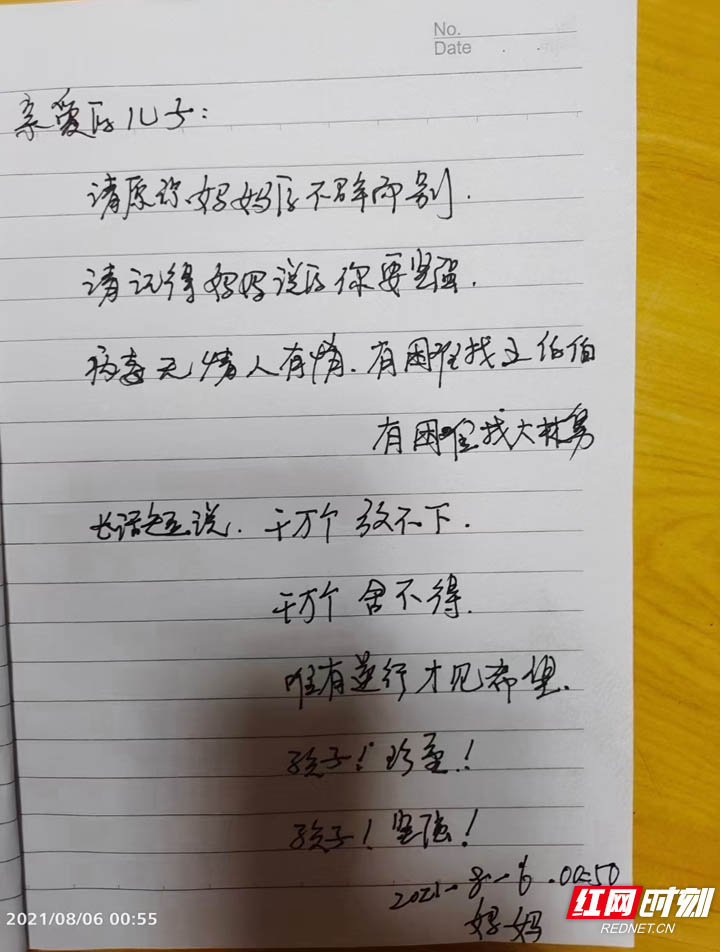 No.
Date
亲爱的儿子：
请原谅妈妈的不辞而别.
请记得妈妈说的你要坚强.
病毒无情人有情.有困难找王伯伯
有困难找大林舅
长话短说.千万个放不下.
千万个舍不得.
唯有逆行才见希望.
孩子！珍重！
孩子！坚强！
2021.8.6.00:50
妈妈
2021/08/06 00:55
红网时刻
REDNET.CN